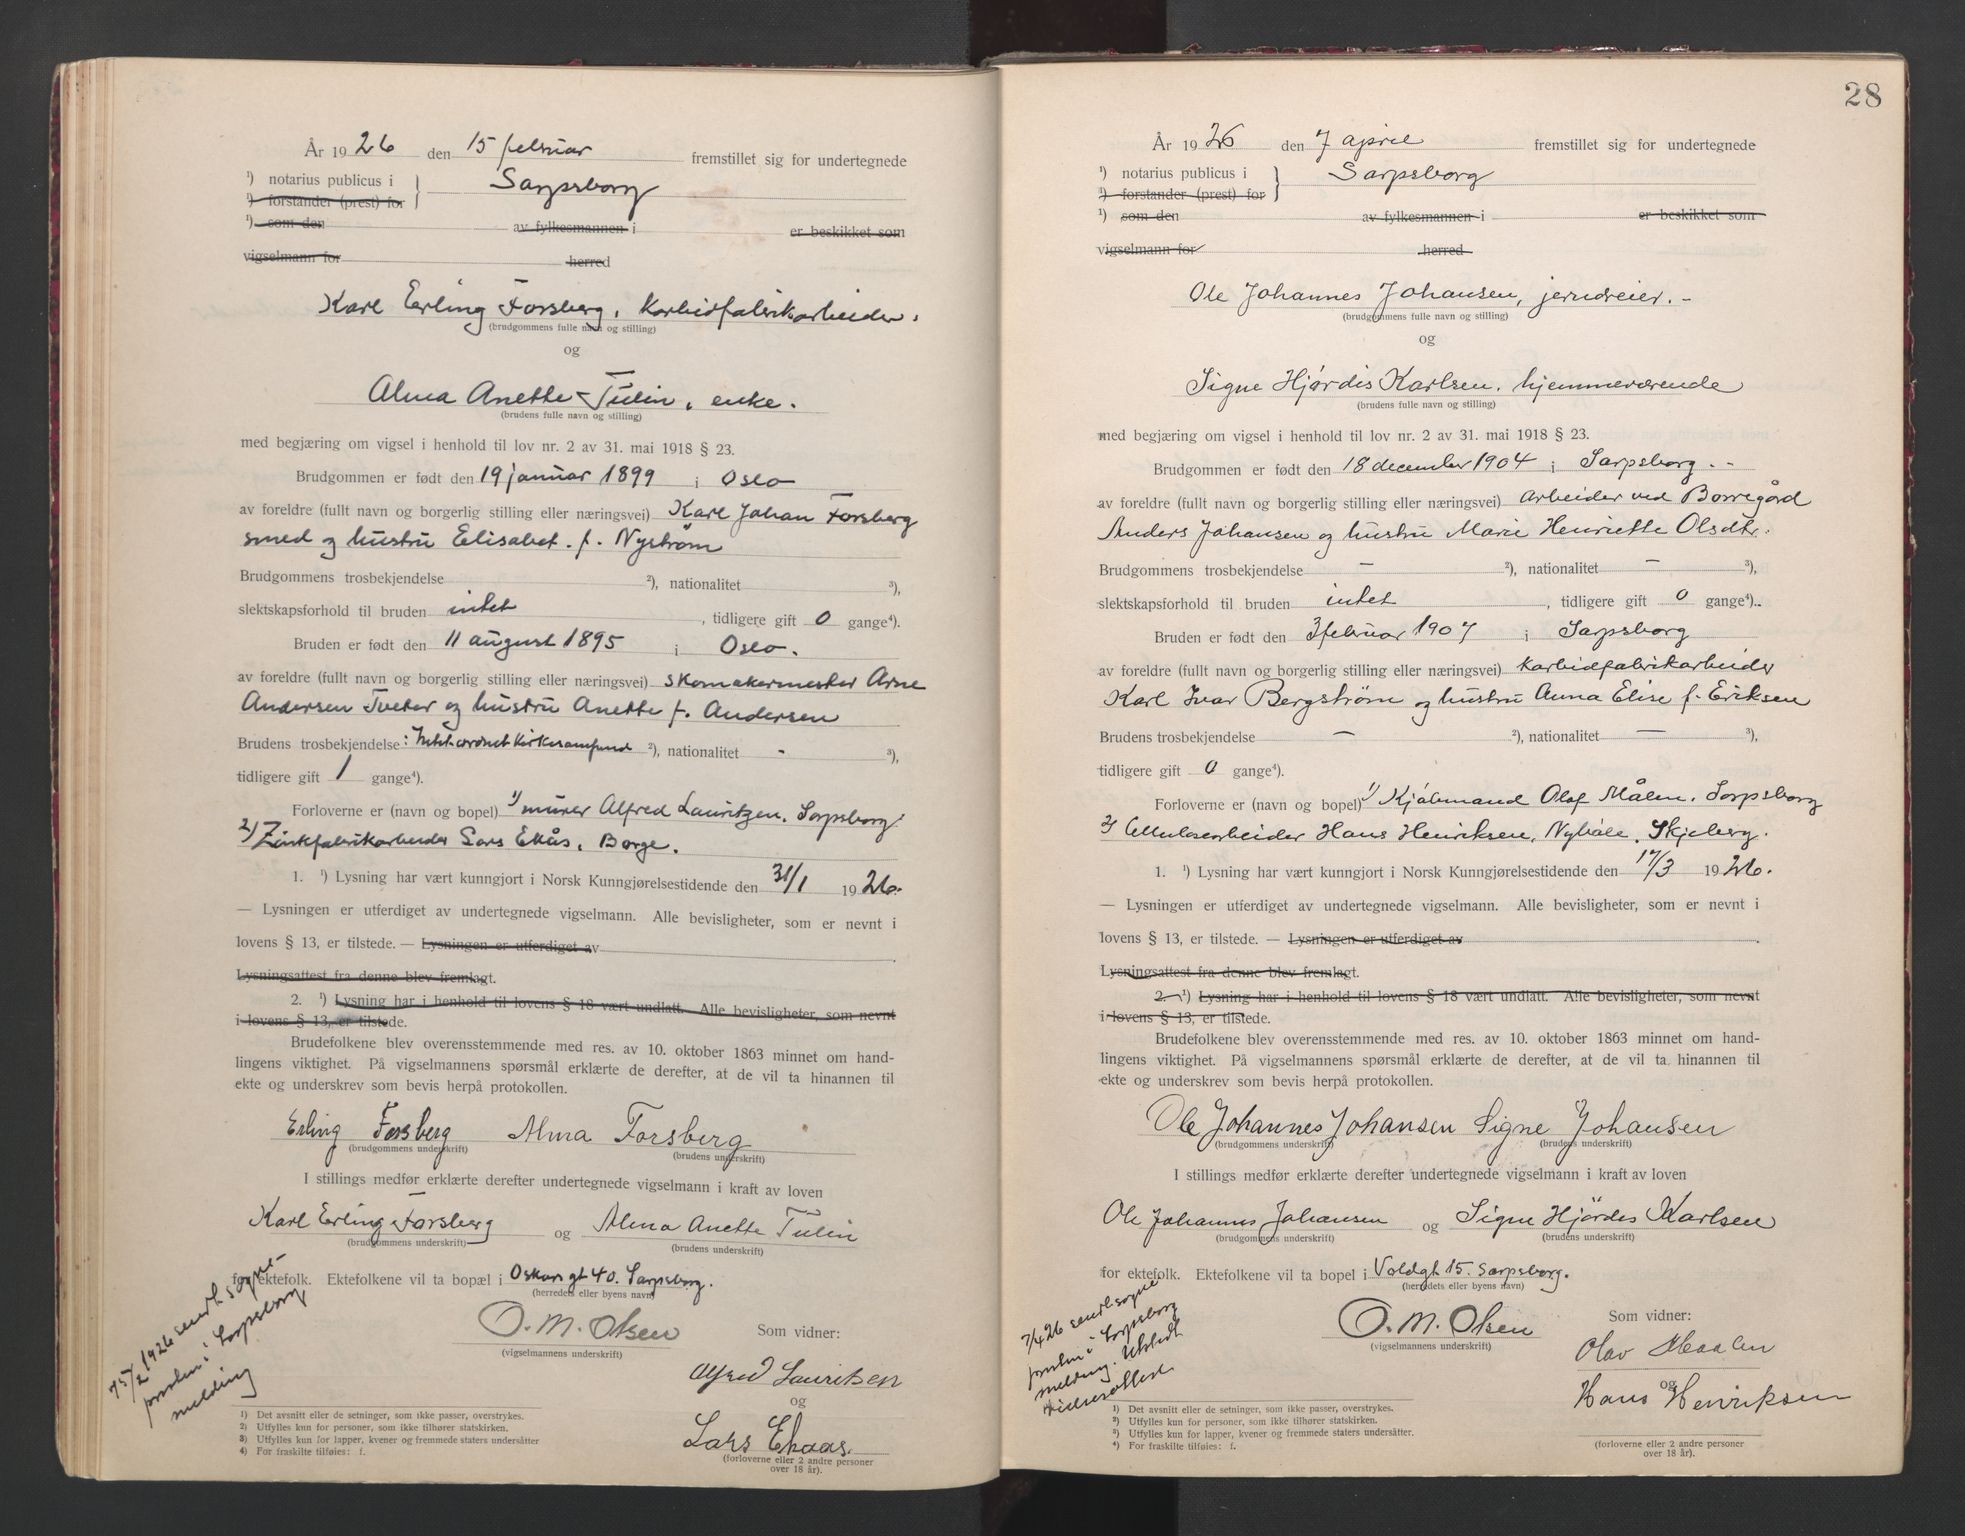 År 1926 den 15 februar fremstillet sig for undertegnede
¹) notarius publicus i } Sarpsborg
¹) forstander (prest) for
¹) som den av fylkesmannen i er beskikket som
vigselmann for herred
Karl Erling Forsberg, Karbidfabrikarbeider.
(brudgommens fulle navn og stilling)
og
Alma Anette Tulin, enke.
(brudens fulle navn og stilling)
med begjæring om vigsel i henhold til lov nr. 2 av 31. mai 1918 § 23.
Brudgommen er født den 19 januar 1899 i Oslo
av foreldre (fullt navn og borgerlig stilling eller næringsvei) Karl Johan Forsberg
smed og hustru Elisabet. f. Nystrøm
Brudgommens trosbekjendelse ²), nationalitet ³),
slektskapsforhold til bruden intet, tidligere gift 0 gange⁴).
Bruden er født den 11 august 1895 i Oslo.
av foreldre (fullt navn og borgerlig stilling eller næringsvei) skomakermester Arne
Andersen Tveter og hustru Anette f. Andersen
Brudens trosbekjendelse: Intet ordnet kirkesamfund ²), nationalitet - ³),
tidligere gift 1 gange⁴).
Forloverne er (navn og bopel) 1) murer Alfred Lauritzen, Sarpsborg.
2) Zinkfabrikarbeider Lars Ekås, Borge.
1. ¹) Lysning har vært kunngjort i Norsk Kunngjørelsestidende den 31/1 1926.
— Lysningen er utferdiget av undertegnede vigselmann. Alle bevisligheter, som er nevnt i
lovens § 13, er tilstede. — Lysningen er utferdiget av
Lysningsattest fra denne blev fremlagt.
2. ¹) Lysning har i henhold til lovens § 18 vært undlatt. Alle bevisligheter, som nevnt
i lovens § 13, er tilstede.
Brudefolkene blev overensstemmende med res. av 10. oktober 1863 minnet om hand-
lingens viktighet. På vigselmannens spørsmål erklærte de derefter, at de vil ta hinannen til
ekte og underskrev som bevis herpå protokollen.
Erling Forsberg Alma Forsberg
(brudgommens underskrift) (brudens underskrift)
I stillings medfør erklærte derefter undertegnede vigselmann i kraft av loven
Karl Erling Forsberg og Alma Anette Tulin
(brudgommens underskrift) (brudens underskrift)
for ektefolk. Ektefolkene vil ta bopæl i Oskars gt 40. Sarpsborg.
(herredets eller byens navn)
15/2 1926 sendt sogne-
presten i Sarpsborg
melding
O. M. Olsen Som vidner:
(vigselmannens underskrift)
Alfred Lauritsen
og
Lars Ekaas.
(forloverne eller 2 andre personer
over 18 år).
1) Det avsnitt eller de setninger, som ikke passer, overstrykes.
2) Utfylles kun for personer, som ikke tilhører statskirken.
3) Utfylles kun for lapper, kvener og fremmede staters undersåtter
4) For fraskilte tilføies: f.
28
År 1926 den 7 april fremstillet sig for undertegnede
¹) notarius publicus i } Sarpsborg
¹) forstander (prest) for
¹) som den av fylkesmannen i er beskikket som
vigselmann for herred
Ole Johannes Johansen, jerndreier. -
(brudgommens fulle navn og stilling)
og
Signe Hjørdis Karlsen, hjemmeværende
(brudens fulle navn og stilling)
med begjæring om vigsel i henhold til lov nr. 2 av 31. mai 1918 § 23.
Brudgommen er født den 18 december 1904 i Sarpsborg. -
av foreldre (fullt navn og borgerlig stilling eller næringsvei) arbeider ved Borregård
Anders Johansen og hustru Marie Henriette Olsdtr.
Brudgommens trosbekjendelse — ²), nationalitet — ³),
slektskapsforhold til bruden intet, tidligere gift 0 gange⁴).
Bruden er født den 3 februar 1907 i Sarpsborg
av foreldre (fullt navn og borgerlig stilling eller næringsvei) karbidfabrikarbeider
Karl Ivar Bergstrøm og hustru Anna Elise f. Eriksen
Brudens trosbekjendelse — ²), nationalitet — ³),
tidligere gift 0 gange⁴).
Forloverne er (navn og bopel) 1) Kjøbmand Olaf Målen, Sarpsborg
2) Cellulosearbeider Hans Henriksen, Skjeberg.
1. ¹) Lysning har vært kunngjort i Norsk Kunngjørelsestidende den 17/3 1926.
— Lysningen er utferdiget av undertegnede vigselmann. Alle bevisligheter, som er nevnt i
lovens § 13, er tilstede. — Lysningen er utferdiget av
Lysningsattest fra denne blev fremlagt.
2. ¹) Lysning har i henhold til lovens § 18 vært undlatt. Alle bevisligheter, som nevnt
i lovens § 13, er tilstede.
Brudefolkene blev overensstemmende med res. av 10. oktober 1863 minnet om hand-
lingens viktighet. På vigselmannens spørsmål erklærte de derefter, at de vil ta hinannen til
ekte og underskrev som bevis herpå protokollen.
Ole Johannes Johansen Signe Johansen
(brudgommens underskrift) (brudens underskrift)
I stillings medfør erklærte derefter undertegnede vigselmann i kraft av loven
Ole Johannes Johansen og Signe Hjördes Karlsen
(brudgommens underskrift) (brudens underskrift)
for ektefolk. Ektefolkene vil ta bopel i Voldgt 15. Sarpsborg.
(herredets eller byens navn)
7/4 26 sendt sogne
presten i Sarpsborg
melding. Utstedt
vielsesattest
O. M. Olsen Som vidner:
(vigselmannens underskrift)
Olav Maalen
og
Hans Henriksen
(forloverne eller 2 andre personer
over 18 år).
1) Det avsnitt eller de setninger, som ikke passer, overstrykes.
2) Utfylles kun for personer, som ikke tilhører statskirken.
3) Utfylles kun for lapper, kvener og fremmede staters undersåtter.
4) For fraskilte tilføies: f.